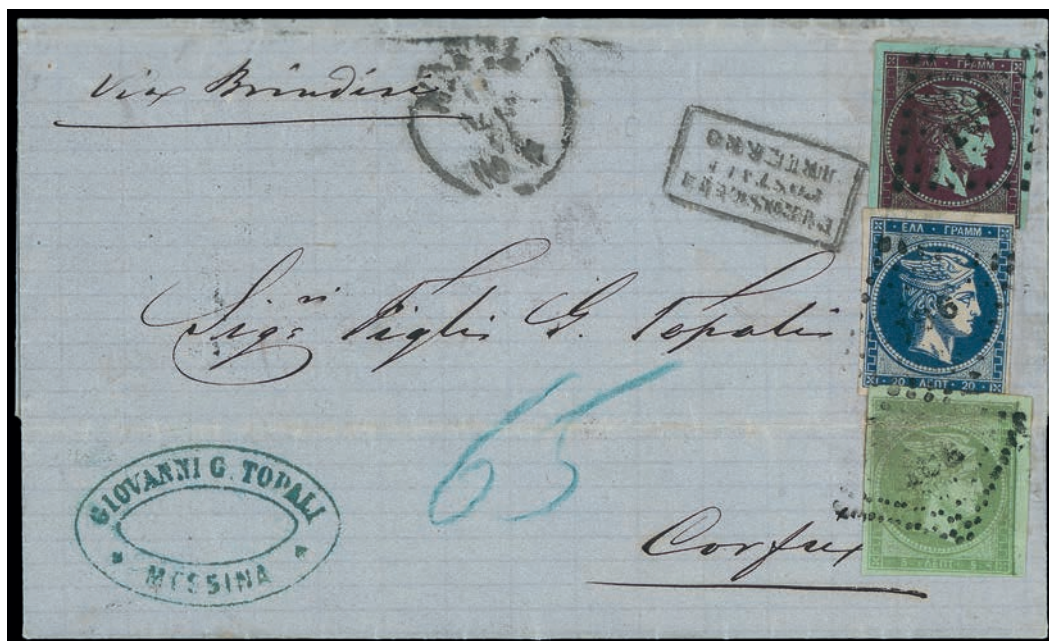 Via Brindisi
PIROSCAFI
POSTALI
INTERNO
ΕΛΛ ΓΡΑΜΜ
ΕΛΛ ΓΡΑΜΜ
20 ΛΕΠΤ 20
Sigri Figli G. Topali
65
5 ΛΕΠΤ 5
GIOVANNI G. TOPALI
MESSINA
Corfu